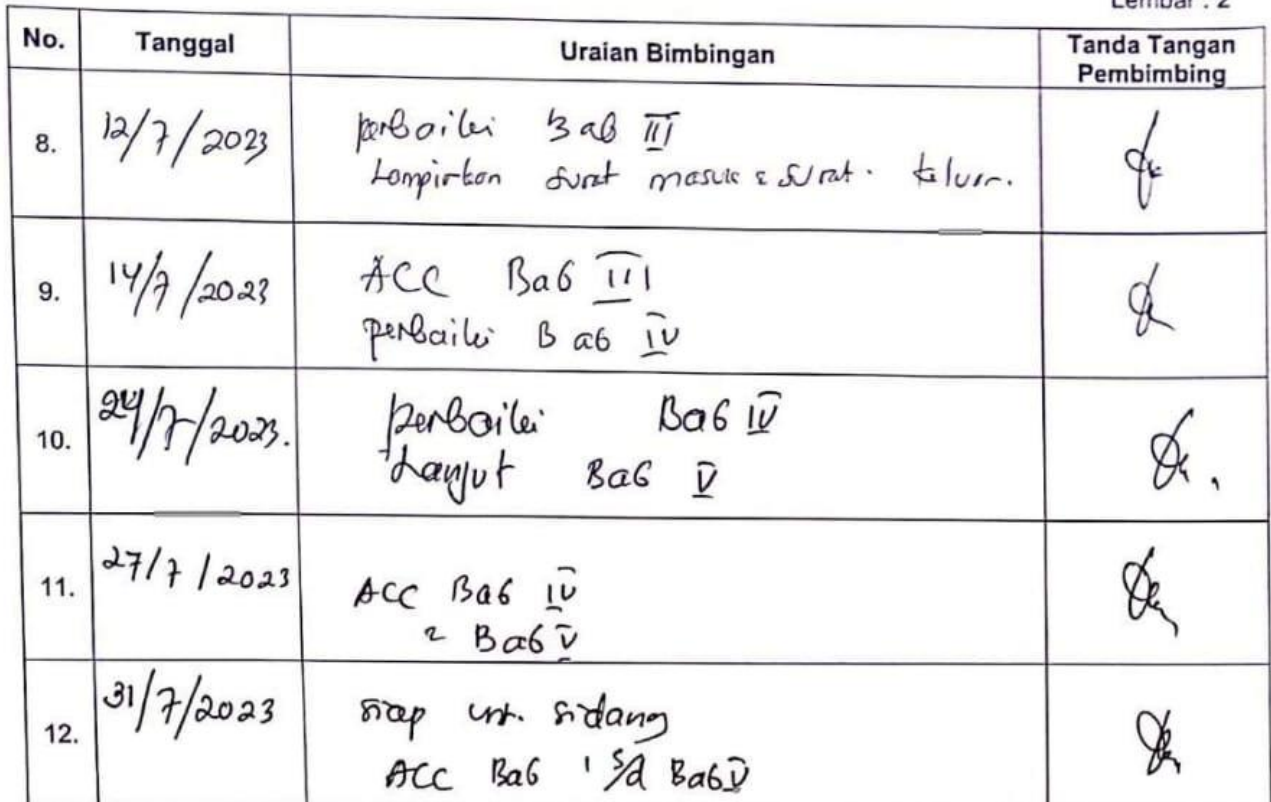 Lembar : 2
No. Tanggal Uraian Bimbingan Tanda Tangan Pembimbing
8. 12/7/2023 perbaiki Bab III
Lampirkan surat masuk & surat. keluar.
9. 14/7/2023 ACC Bab III
perbaiki Bab IV
10. 24/7/2023. perbaiki Bab IV
Lanjut Bab V
11. 27/7/2023 ACC Bab IV
& Bab V
12. 31/7/2023 siap unt. sidang
ACC Bab 1 s/d Bab V